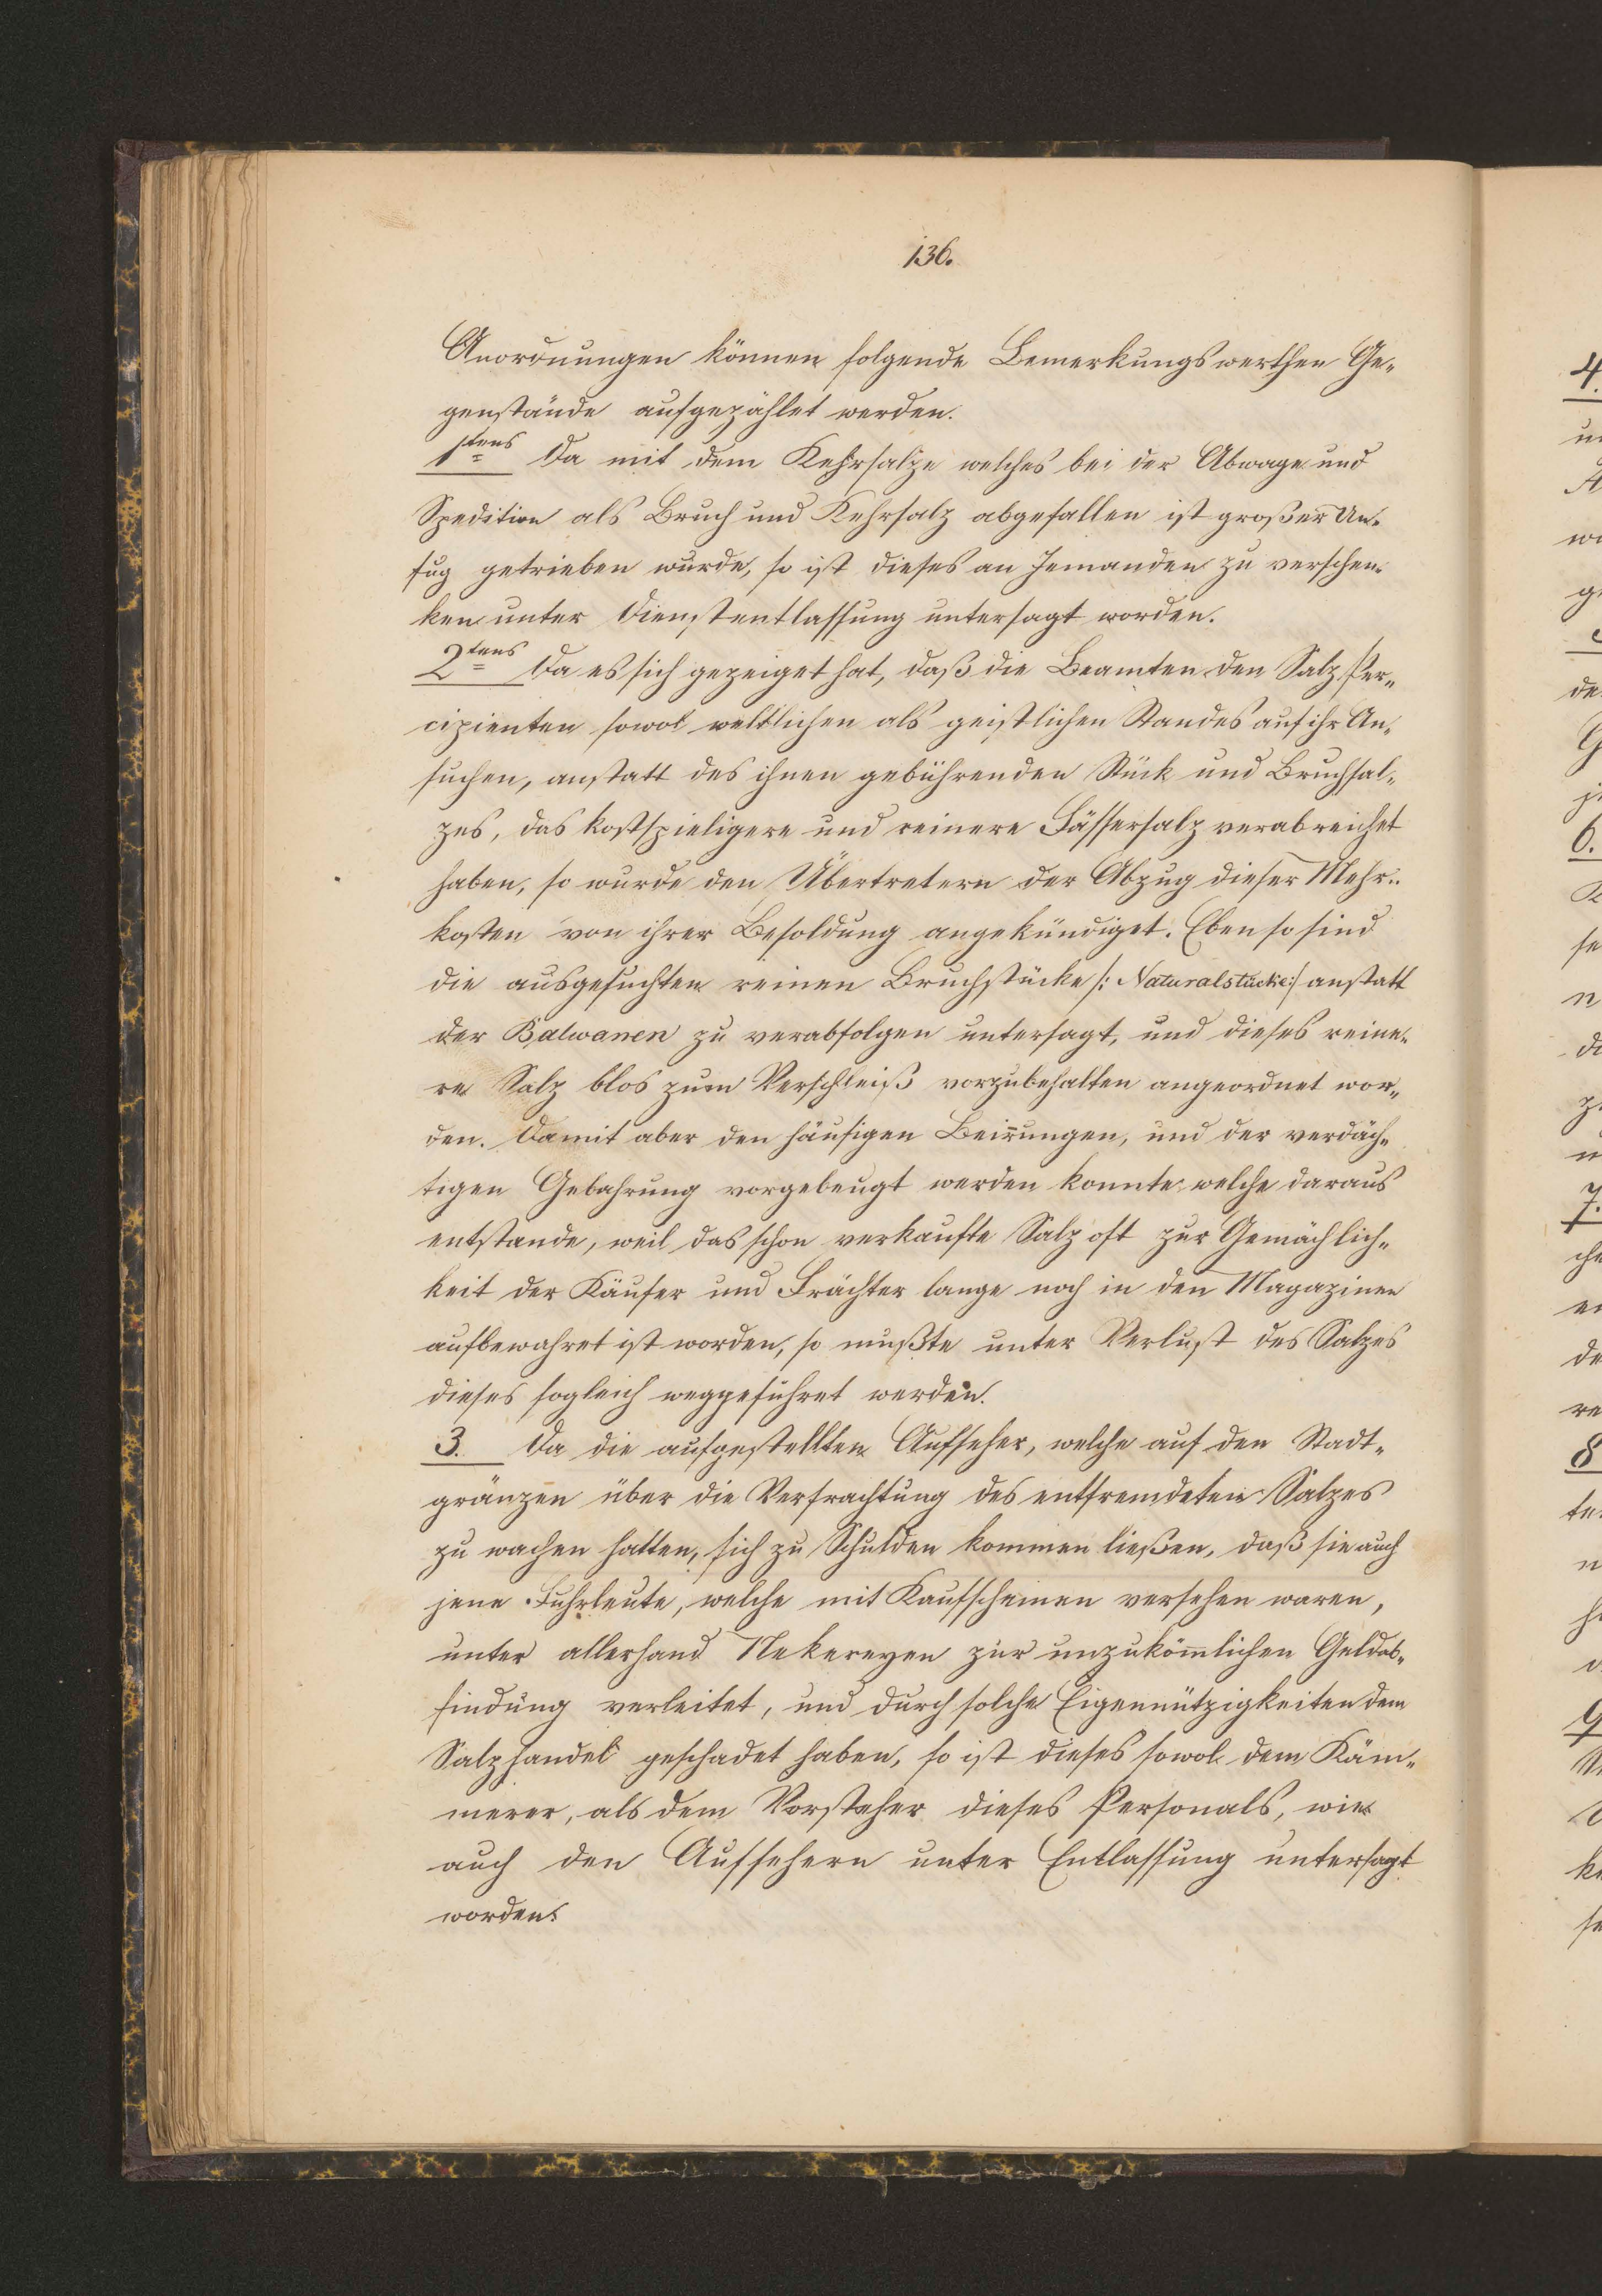 136.
Anordnungen können folgende Bemerkungswerthen Ge„
genstände aufgezählet werden.
1tens Da mit dem Kehrsalze welches bei der Abwage und
Spedition als Bruch und Kehrsalz abgefallen ist großer Un„
fug getrieben wurde, so ist dieses an Jemanden zu verschen„
ken unter Dienstentlassung untersagt worden.
2tens Da es sich gezeiget hat, daß die Beamten den Salz Per„
cipienten sowol weltlichen als geistlichen Standes auf ihr An„
suchen, anstatt des ihnen gebührenden Stük und Bruchsal„
zes, das kostspieligere und reinere Fässersalz verabreichet
haben, so wurde den Übertretern der Abzug dieser Mehr„
kosten von ihrer Besoldung angekündiget. Eben so sind
die ausgesuchten reinen Bruchstücke /: Naturalstücke :/ anstatt
der Balwanen zu verabfolgen untersagt, und dieses reine„
re Salz blos zum Verschleiß vorzubehalten angeordnet wor„
den. Damit aber den häufigen Beirrungen, und der verdäch„
tigen Gebahrung vorgebeugt werden konnte welche daraus
entstande, weil das schon verkaufte Salz oft zur Gemächlich„
keit der Käufer und Frächter lange noch in den Magazinen
aufbewahret ist worden, so mußte unter Verlust des Salzes
dieses sogleich weggeführet werden.
3. Da die aufgestellten Aufseher, welche auf den Stadt„
gränzen über die Verfrachtung des entfremdeten Salzes
zu wachen hatten, sich zu Schulden kommen ließen, daß sie auch
jene Fuhrleute, welche mit Kaufscheinen versehen waren,
unter allerhand Nekereyen zur unzukömmlichen Geldab„
findung verleitet, und durch solche Eigennützigkeiten dem
Salzhandel geschadet haben, so ist dieses sowol dem Käm„
merer, als dem Vorsteher dieses Personals, wie
auch den Aufsehern unter Entlassung untersagt
worden.